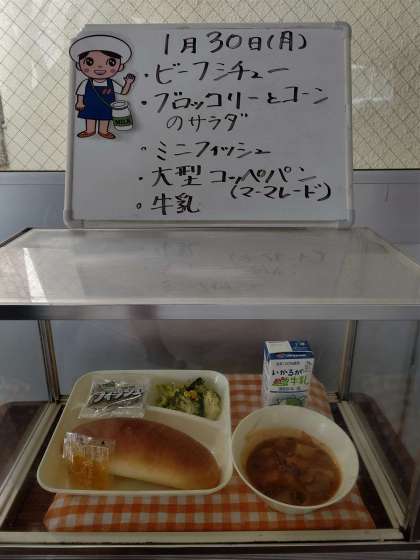 1月30日(月)
・ビーフシチュー
・ブロッコリーとコーン
のサラダ
・ミニフィッシュ
・大型コッペパン
(マーマレード)
・牛乳
MILK
いかるが
牛乳